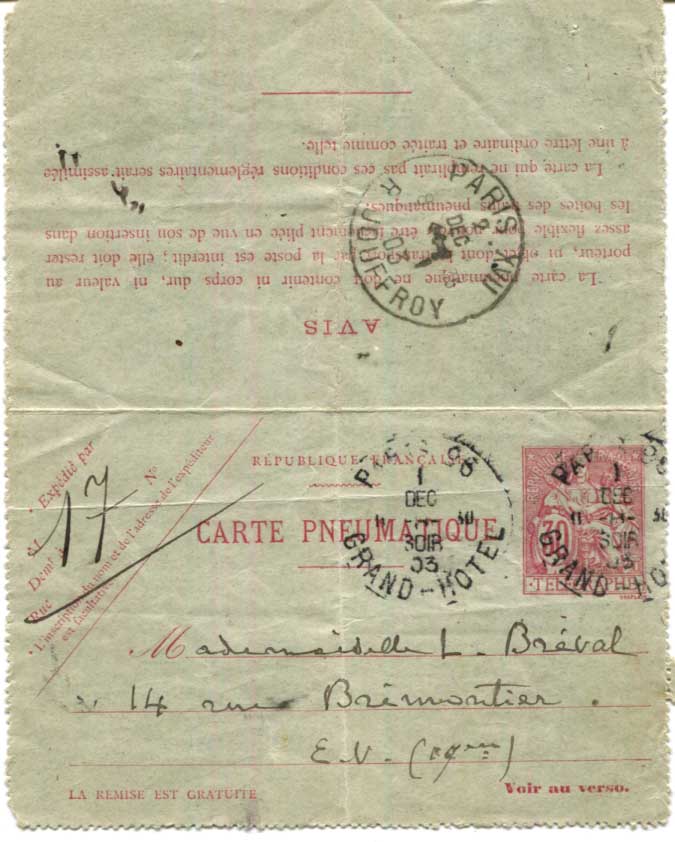 AVIS
La carte pneumatique ne doit contenir ni corps dur, ni valeur au
porteur, ni objet dont le transport par la poste est interdit ; elle doit rester
assez flexible pour pouvoir être facilement pliée en vue de son insertion dans
les boîtes des tubes pneumatiques.
La carte qui ne remplirait pas ces conditions réglementaires serait assimilée
à une lettre ordinaire et traitée comme telle.
PARIS XVII
R. JOUFFROY
DEC
03
Expédié par
M
Demt à
Rue
N°
L'inscription du nom et de l'adresse de l'expéditeur
est facultative.
17
RÉPUBLIQUE FRANÇAISE
CARTE PNEUMATIQUE
PARIS 96
1
DEC
11 30
SOIR
03
GRAND-HOTEL
30
TELEGRAPHE
PARIS 96
1
DEC
11 30
SOIR
03
GRAND-HOTEL
Mademoiselle L. Bréval
14 rue Brémontier.
E.V. (17ème)
LA REMISE EST GRATUITE
Voir au verso.